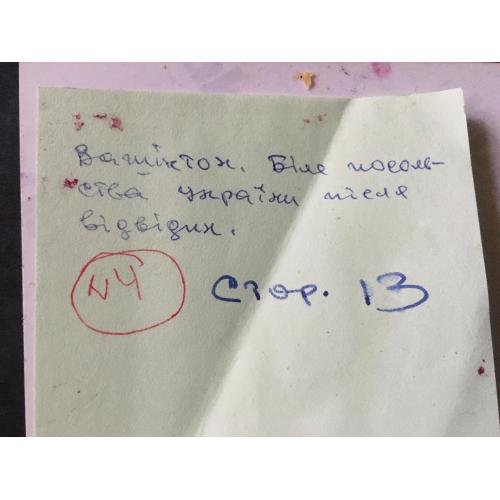 Вашінґтон. Біля посоль-
ства України після
відвідин.
N4 Стор. 13